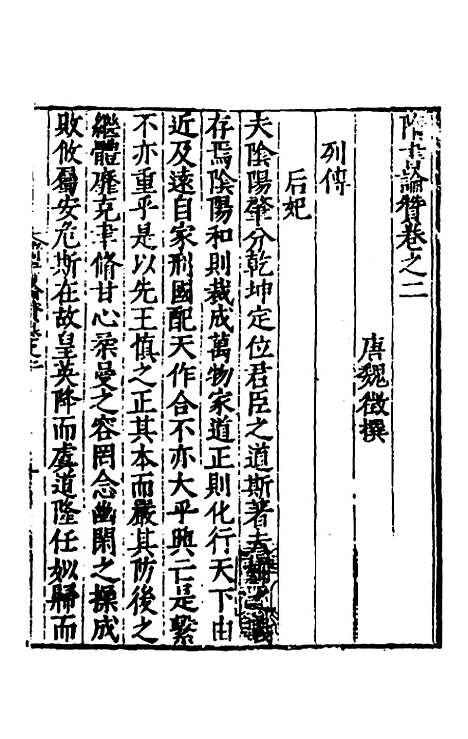 隋書論贊卷之二
唐魏徵撰
列傳
后妃
夫陰陽肇分乾坤定位君臣之道斯著夫婦之義
存焉陰陽和則裁成萬物家道正則化行天下由
近及遠自家刑國配天作合不亦大乎興亡是繫
不亦重乎是以先王慎之正其本而嚴其防後之
繼體靡克聿脩甘心柔曼之容罔念幽閑之操成
敗攸屬安危斯在故皇英降而虞道隆任姒歸而